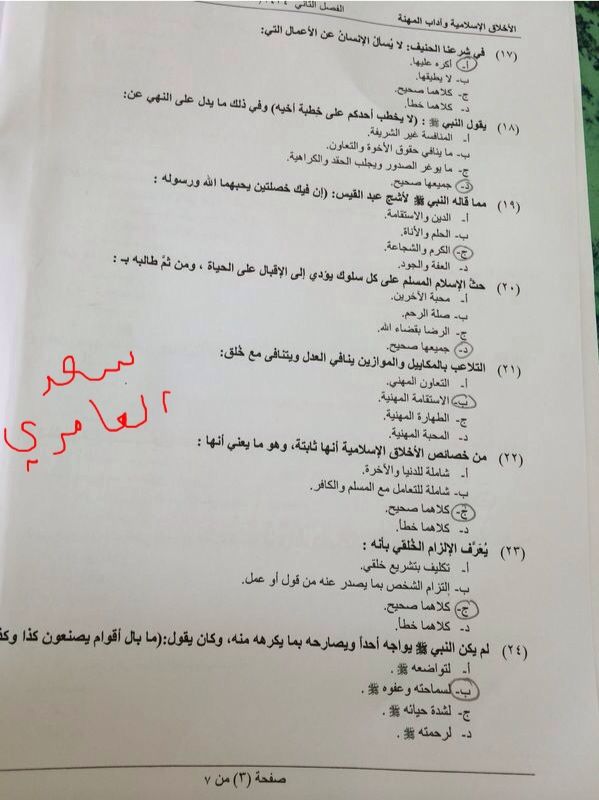 الأخلاق الإسلامية وآداب المهنة
الفصل الثاني
(١٧) في شرعنا الحنيف: لا يُسأل الإنسان عن الأعمال التي:
أ- أكره عليها.
ب- لا يطيقها.
ج- كلاهما صحيح.
د- كلاهما خطأ.
(١٨) يقول النبي ﷺ : (لا يخطب أحدكم على خطبة أخيه) وفي ذلك ما يدل على النهي عن:
أ- المنافسة غير الشريفة.
ب- ما ينافي حقوق الأخوة والتعاون.
ج- ما يوغر الصدور ويجلب الحقد والكراهية.
د- جميعها صحيح.
(١٩) مما قاله النبي ﷺ لأشج عبد القيس: (إن فيك خصلتين يحبهما الله ورسوله :
أ- الدين والاستقامة.
ب- الحلم والأناة.
ج- الكرم والشجاعة.
د- العفة والجود.
(٢٠) حثَّ الإسلام المسلم على كل سلوك يؤدي إلى الإقبال على الحياة ، ومن ثمَّ طالبه بـ :
أ- محبة الآخرين.
ب- صلة الرحم.
ج- الرضا بقضاء الله.
د- جميعها صحيح.
(٢١) التلاعب بالمكاييل والموازين ينافي العدل ويتنافى مع خُلق:
أ- التعاون المهني.
ب- الاستقامة المهنية.
ج- الطهارة المهنية.
د- المحبة المهنية.
سعد
العامري
(٢٢) من خصائص الأخلاق الإسلامية أنها ثابتة، وهو ما يعني أنها :
أ- شاملة للدنيا والآخرة.
ب- شاملة للتعامل مع المسلم والكافر.
ج- كلاهما صحيح.
د- كلاهما خطأ.
(٢٣) يُعَرَّف الإلزام الخُلقي بأنه :
أ- تكليف بتشريع خلقي.
ب- إلتزام الشخص بما يصدر عنه من قول أو عمل.
ج- كلاهما صحيح.
د- كلاهما خطأ.
(٢٤) لم يكن النبي ﷺ يواجه أحداً ويصارحه بما يكرهه منه، وكان يقول:(ما بال أقوام يصنعون كذا
أ- لتواضعه ﷺ .
ب- لسماحته وعفوه ﷺ .
ج- لشدة حيائه ﷺ .
د- لرحمته ﷺ .
صفحة (٣) من ٧